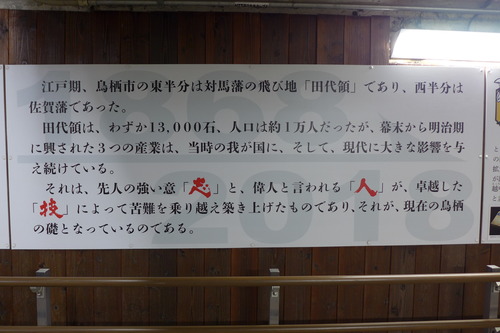 江戸期、鳥栖市の東半分は対馬藩の飛び地「田代領」であり、西半分は
佐賀藩であった。
田代領は、わずか13,000石、人口は約1万人だったが、幕末から明治期
に興された3つの産業は、当時の我が国に、そして、現代に大きな影響を与
え続けている。
それは、先人の強い意「志」と、偉人と言われる「人」が、卓越した
「技」によって苦難を乗り越え築き上げたものであり、それが、現在の鳥栖
の礎となっているのである。
1868
2018